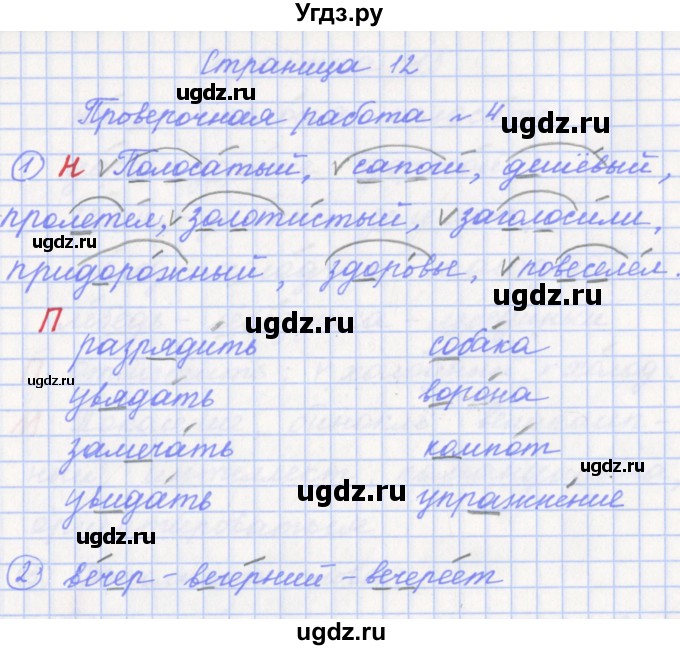 Угдз.ру
Страница 12
ugdz.ru
Проверочная работа № 4
ugdz.ru
1 Н Полосатый, сапоги, дешёвый,
ugdz.ru
пролетел, золотистый, заголосили,
ugdz.ru
придорожный, здоровье, повеселел.
ugdz.ru
П
ugdz.ru
разрядить собака
ugdz.ru
ugdz.ru
увядать ворона
замечать компот
ugdz.ru
ugdz.ru
увидать упражнение
2 вечер - вечерний - вечереет
ugdz.ru
ugdz.ru